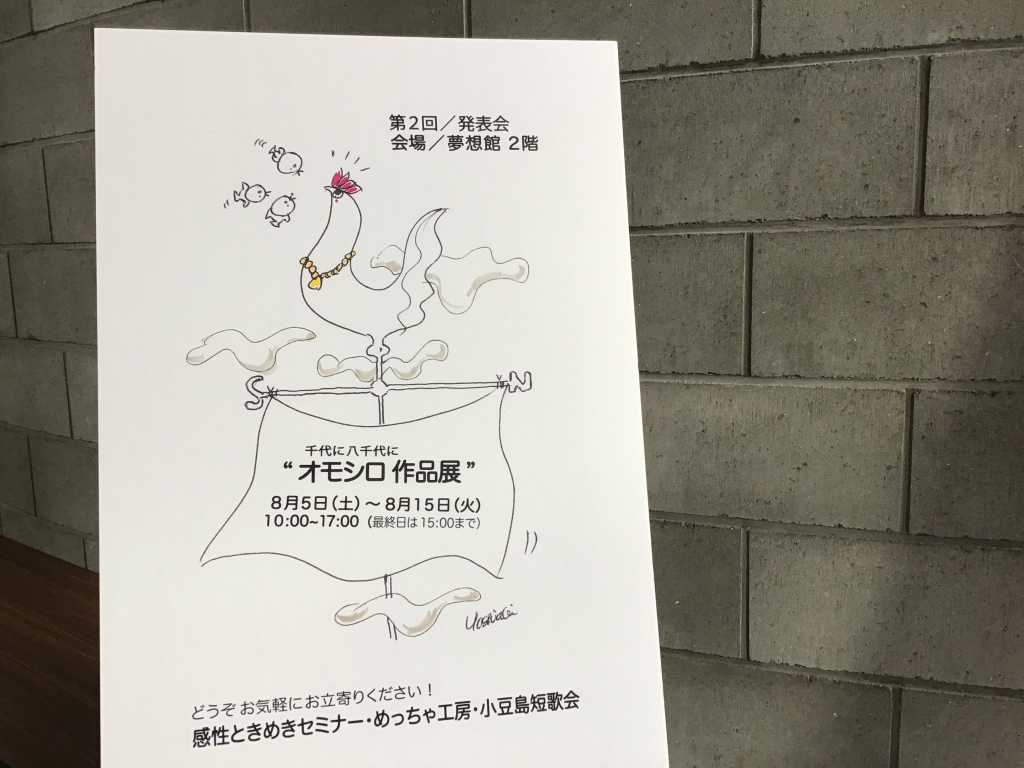 第2回／発表会
会場／夢想館 2階
S
N
千代に八千代に
“オモシロ 作品展”
8月5日(土)〜8月15日(火)
10:00~17:00 (最終日は15:00まで)
どうぞお気軽にお立寄りください！
感性ときめきセミナー・めっちゃ工房・小豆島短歌会